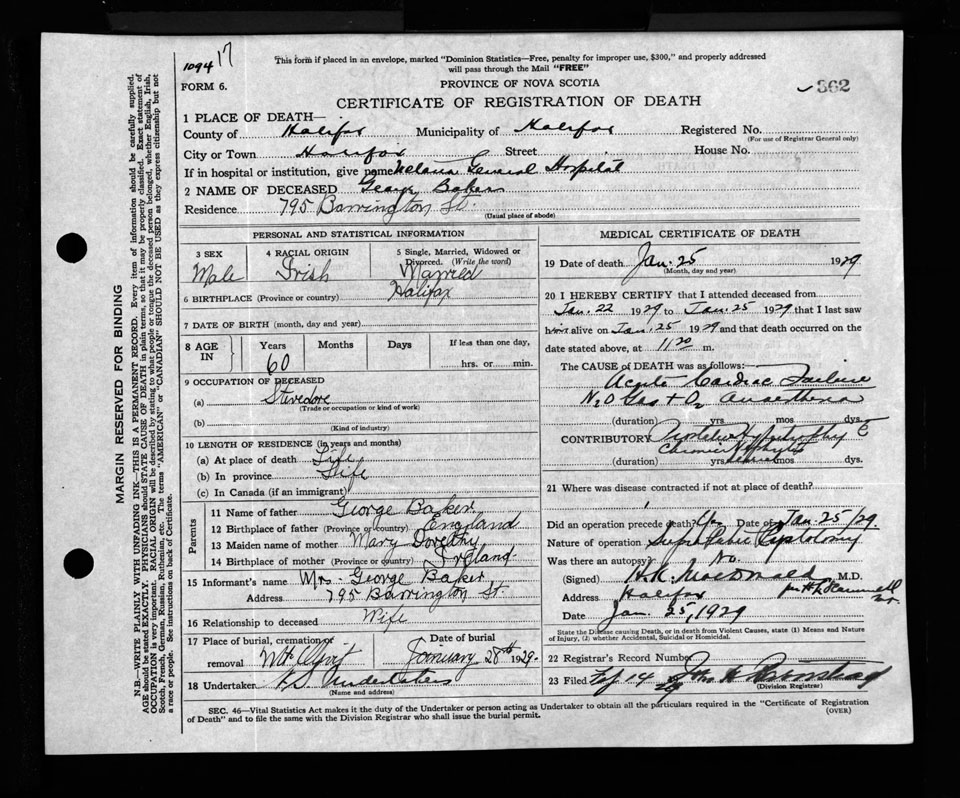 1094 17
This form if placed in an envelope, marked "Dominion Statistics—Free, penalty for improper use, $300," and properly addressed
will pass through the Mail "FREE"
FORM 6.
PROVINCE OF NOVA SCOTIA
362
CERTIFICATE OF REGISTRATION OF DEATH
1 PLACE OF DEATH—
County of Halifax Municipality of Halifax Registered No.
(For use of Registrar General only)
City or Town Halifax Street House No.
If in hospital or institution, give name Victoria General Hospital
2 NAME OF DECEASED George Baker
Residence 795 Barrington St.
(Usual place of abode)
PERSONAL AND STATISTICAL INFORMATION
3 SEX Male
4 RACIAL ORIGIN Irish
5 Single, Married, Widowed or Divorced. (Write the word) Married
6 BIRTHPLACE (Province or country) Halifax
7 DATE OF BIRTH (month, day and year)
8 AGE IN Years 60 Months Days If less than one day, hrs. or min.
9 OCCUPATION OF DECEASED
(a) Stevedore
(Trade or occupation or kind of work)
(b)
(Kind of industry)
10 LENGTH OF RESIDENCE (in years and months)
(a) At place of death Life
(b) In province Life
(c) In Canada (if an immigrant)
Parents
11 Name of father George Baker
12 Birthplace of father (Province or country) England
13 Maiden name of mother Mary Dorothy
14 Birthplace of mother (Province or country) Ireland
15 Informant's name Mrs. George Baker
Address 795 Barrington St.
16 Relationship to deceased Wife
17 Place of burial, cremation or removal Mt. Olivet
Date of burial January 28th 1929.
18 Undertaker Undertakers
(Name and address)
MEDICAL CERTIFICATE OF DEATH
19 Date of death Jan. 25 1929
(Month, day and year)
20 I HEREBY CERTIFY that I attended deceased from
Jan. 22 1929 to Jan. 25 1929 that I last saw
him alive on Jan. 25 1929 and that death occurred on the
date stated above, at 11 20 m.
The CAUSE of DEATH was as follows:
Acute Cardiac Failure
N2O Gas + O2 anaesthesia
(duration) yrs mos dys
CONTRIBUTORY
Chronic
(duration) yrs mos dys.
21 Where was disease contracted if not at place of death?
Did an operation precede death? Yes Date of Jan. 25/29.
Nature of operation Supra Pubic Cystotomy
Was there an autopsy? No.
(Signed) H.K. MacDonald M.D.
Address Halifax
Date Jan. 25, 1929
State the Disease causing Death, or in death from Violent Causes, state (1) Means and Nature
of Injury, (2) whether Accidental, Suicidal or Homicidal.
22 Registrar's Record Number
23 Filed Feb 14 29
(Division Registrar)
SEC. 46—Vital Statistics Act makes it the duty of the Undertaker or person acting as Undertaker to obtain all the particulars required in the "Certificate of Registration
of Death" and to file the same with the Division Registrar who shall issue the burial permit.
(OVER)
MARGIN RESERVED FOR BINDING
N.B.—WRITE PLAINLY WITH UNFADING INK—THIS IS A PERMANENT RECORD. Every item of information should be carefully supplied.
AGE should be stated EXACTLY. PHYSICIANS should STATE CAUSE OF DEATH in plain terms, so that it may be properly classified. Exact statement of
OCCUPATION is very important. RACIAL ORIGIN will be described by stating to what people or tongue the deceased person belonged, whether English, Irish,
Scotch, French, German, Russian, Ruthenian, etc. The terms "AMERICAN" or "CANADIAN" SHOULD NOT BE USED as they express citizenship but not
a race or people. See instructions on back of Certificate.